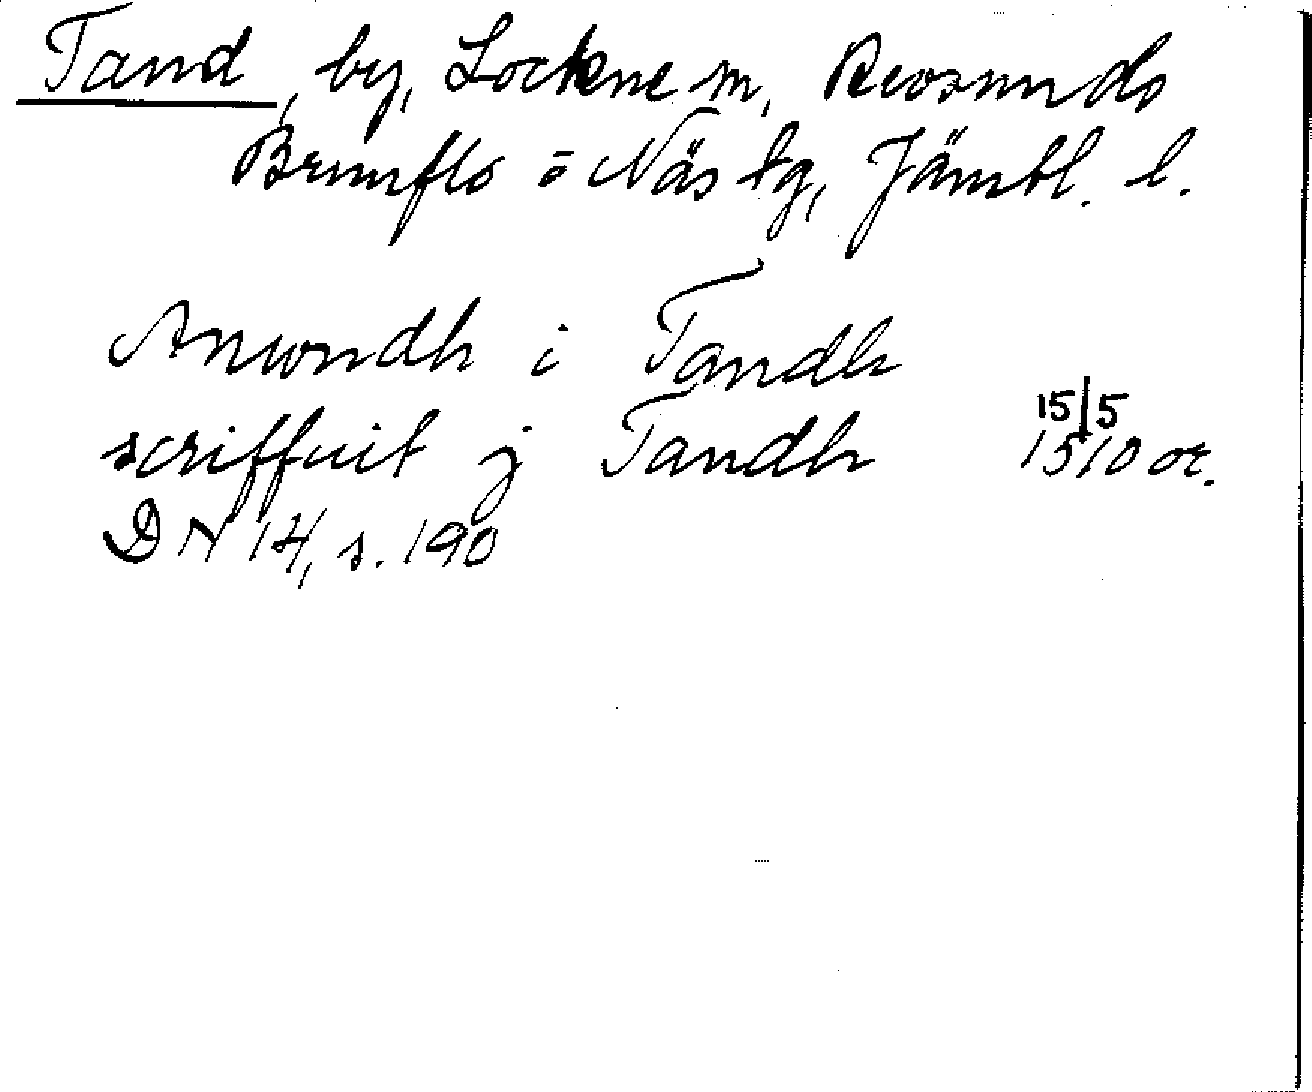 Tand, by, Lockne sn, Revsunds
Brunflo o Näs tg, Jämtl. l.
Anundh i Tandh
scriffuit j Tandh 15/5 1510 or.
DN 14, s. 190